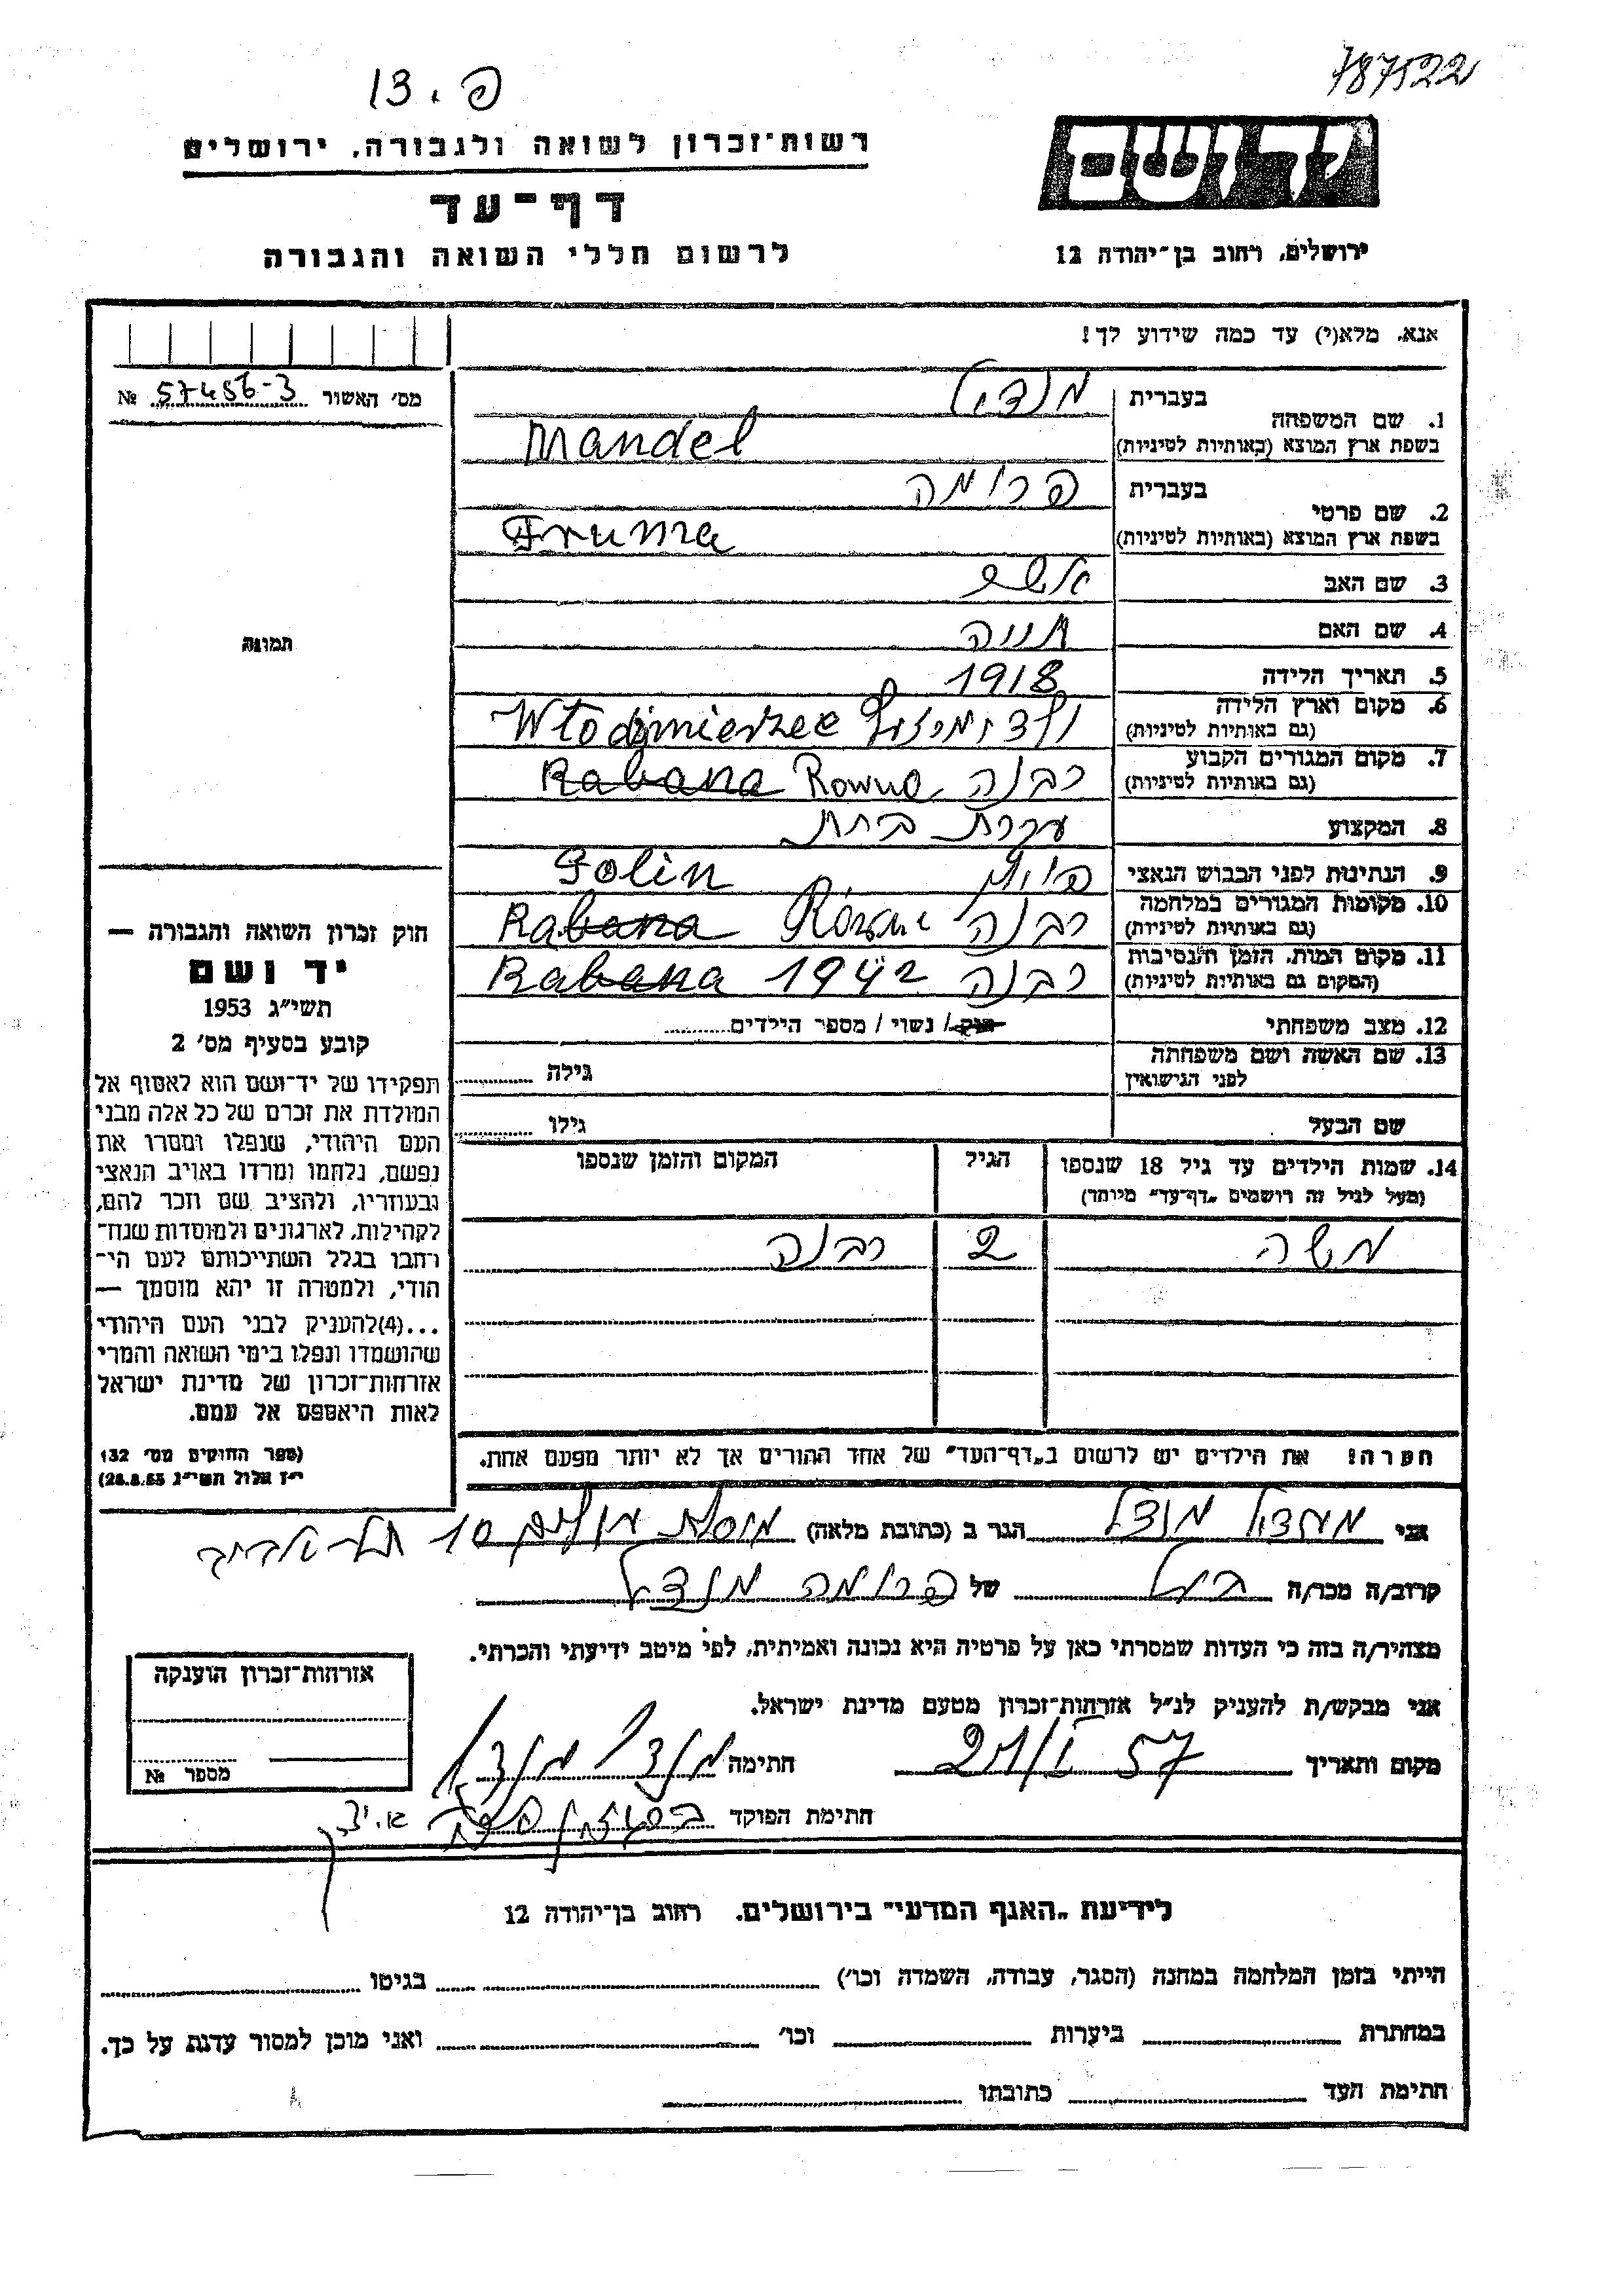 787522
פ. 13
יד ושם
רשות־זכרון לשואה ולגבורה, ירושלים
דף־עד
לרשום חללי השואה והגבורה
ירושלים, רחוב בן־יהודה 12
אנא, מלא(י) עד כמה שידוע לך!
מס׳ האשור 57486-3 №
תמונה
1. שם המשפחה בעברית מנדיל
בשפת ארץ המוצא (באותיות לטיניות) Mandel
2. שם פרטי בעברית פרומה
בשפת ארץ המוצא (באותיות לטיניות) Fruma
3. שם האב
4. שם האם חייה
5. תאריך הלידה 1918
6. מקום וארץ הלידה
(גם באותיות לטיניות)
7. מקום המגורים הקבוע רבנה Rowne Rabana
(גם באותיות לטיניות)
8. המקצוע עקרת בית
9. הנתינות לפני הכבוש הנאצי פולין Polin
10. מקומות המגורים במלחמה רבנה Rabana
(גם באותיות לטיניות)
11. מקום המות, הזמן והנסיבות רבנה 1942 Rabana
(המקום גם באותיות לטיניות)
12. מצב משפחתי רווק / נשוי / מספר הילדים
13. שם האשה ושם משפחתה גילה
לפני הנישואין
שם הבעל גילו
14. שמות הילדים עד גיל 18 שנספו הגיל המקום והזמן שנספו
(מעל לגיל זה רושמים „דף־עד״ מיוחד)
משה 2 רבנה
הערה! את הילדים יש לרשום ב„דף־העד״ של אחד ההורים אך לא יותר מפעם אחת.
חוק זכרון השואה והגבורה —
יד ושם
תשי״ג 1953
קובע בסעיף מס׳ 2
תפקידו של יד־ושם הוא לאסוף אל
המולדת את זכרם של כל אלה מבני
העם היהודי, שנפלו ומסרו את
נפשם, נלחמו ומרדו באויב הנאצי
ובעוזריו, ולהציב שם וזכר להם,
לקהילות, לארגונים ולמוסדות שנח־
רחבו בגלל השתייכותם לעם הי־
הודי, ולמטרה זו יהא מוסמך —
...(4)להעניק לבני העם היהודי
שהושמדו ונפלו בימי השואה והמרי
אזרחות־זכרון של מדינת ישראל
לאות היאספם אל עמם.
(ספר החוקים מס׳ 132
י״ז אלול תשי״ג 28.8.53)
אני מנדל הגר ב (כתובת מלאה) 10 תל אביב
קרוב/ה מכר/ה בעל של פרומה מנדל
מצהיר/ה בזה כי העדות שמסרתי כאן על פרטיה היא נכונה ואמיתית, לפי מיטב ידיעתי והכרתי.
אני מבקש/ת להעניק לנ״ל אזרחות־זכרון מטעם מדינת ישראל.
מקום ותאריך 57 חתימה
חתימת הפוקד
אזרחות־זכרון הוענקה
מספר №
לידיעת „האגף המדעי״ בירושלים, רחוב בן־יהודה 12
הייתי בזמן המלחמה במחנה (הסגר, עבודה, השמדה וכו׳) בגיטו
במחתרת ביערות וכו׳ ואני מוכן למסור עדות על כך.
חתימת העד כתובתו